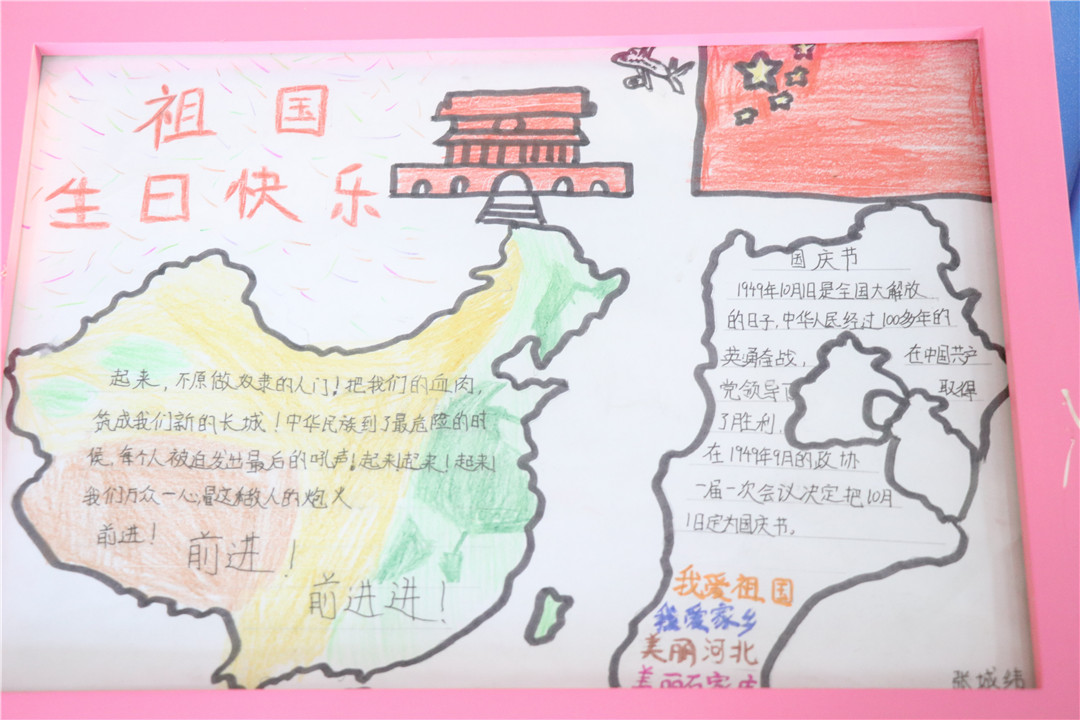 祖国
生日快乐
起来,不原做奴隶的人门!把我们的血肉,
筑成我们新的长城!中华民族到了最危险的时
候,每个人被迫发出最后的吼声!起来起来!起来!
我们万众一心冒这敌人的炮火
前进!
前进!
前进进!
国庆节
1949年10月1日是全国大解放
的日子,中华人民经过100多年的
英涌奋战, 在中国共产
党领导下 取得
了胜利.
在1949年9月的政协
一届一次会议决定把10月
1日定为国庆节。
我爱祖国
我爱家乡
美丽河北
美丽石家庄
张城纬